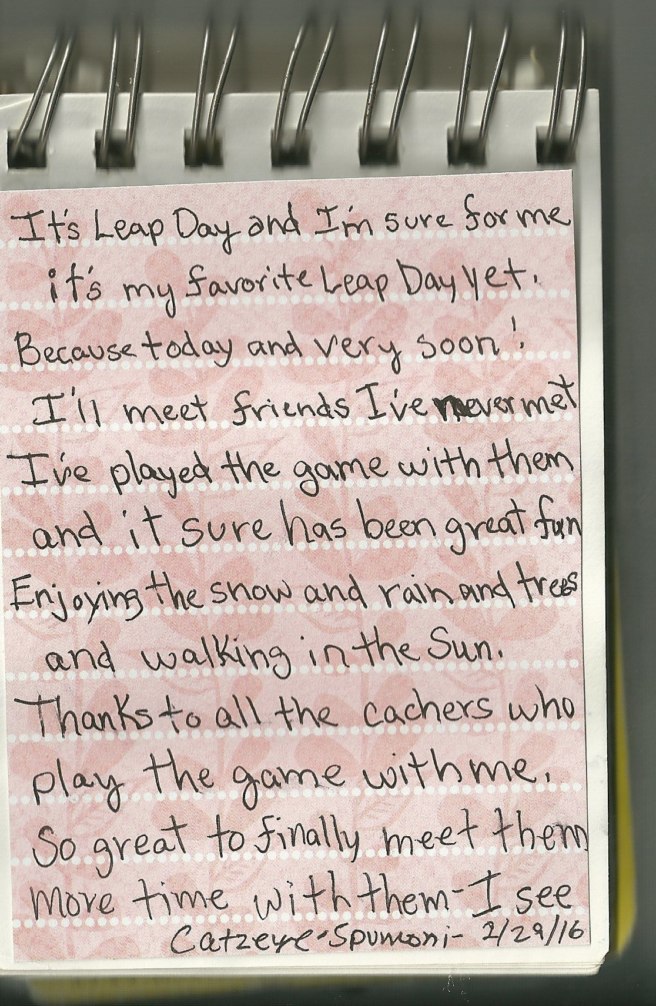 It's Leap Day and I'm sure for me
it's my favorite Leap Day yet.
Because today and very soon!
I'll meet friends I've never met
I've played the game with them
and it sure has been great fun
Enjoying the snow and rain and trees
and walking in the Sun.
Thanks to all the cachers who
play the game with me.
So great to finally meet them
more time with them - I see
Catzeye-Spumoni- 2/29/16